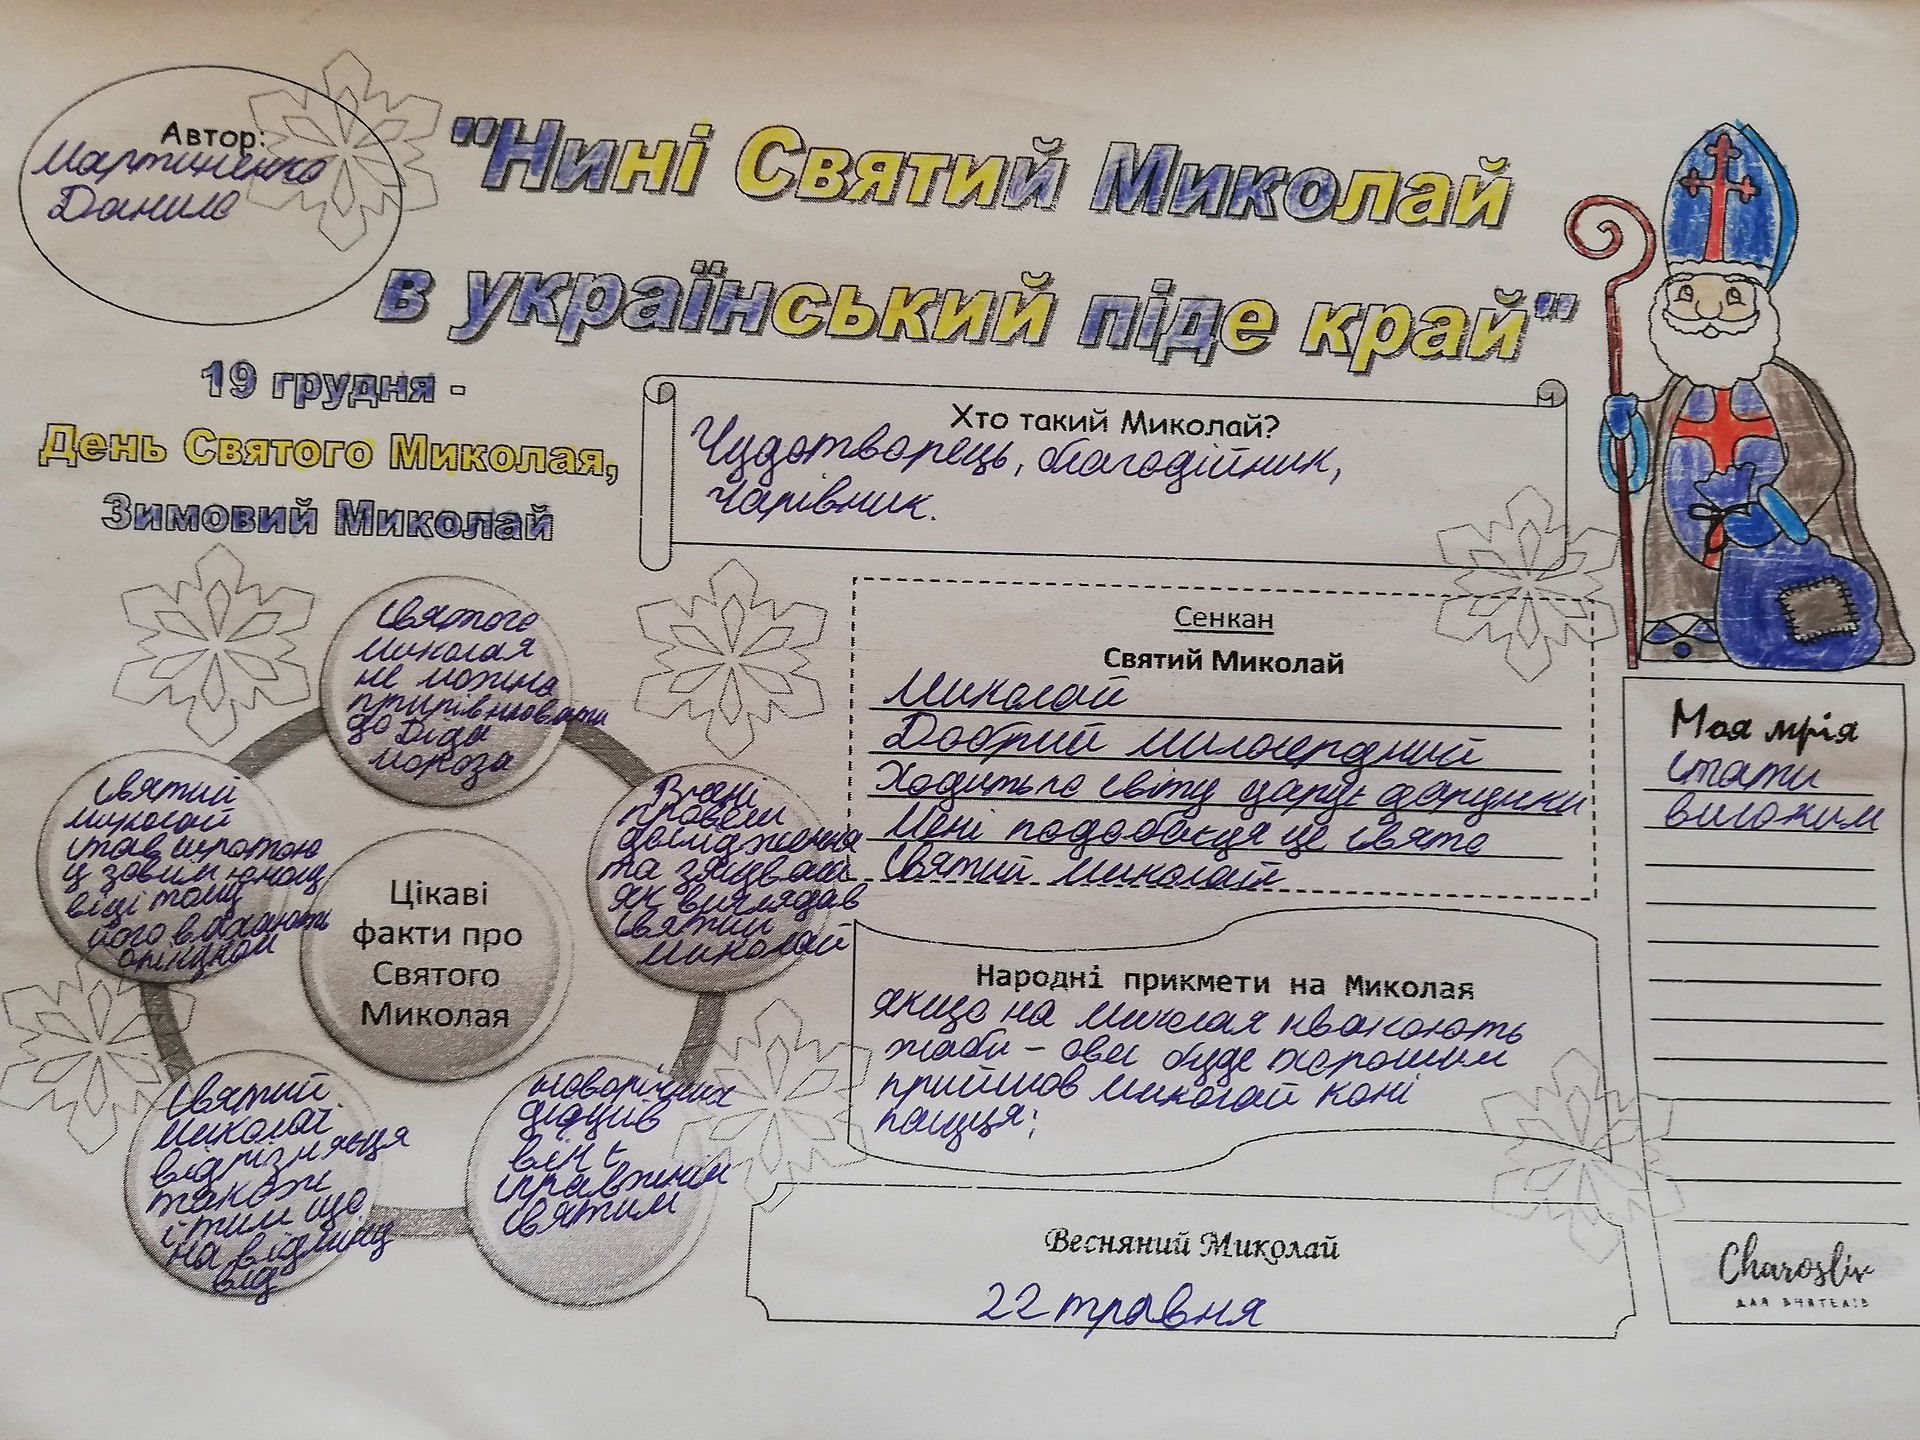 Автор:
Мартиненко
Данило
"Нині Святий Миколай
в український піде край"
19 грудня -
День Святого Миколая,
Зимовий Миколай
Хто такий Миколай?
Чудотворець, благодійник,
чарівник.
Сенкан
Святий Миколай
Миколай
Добрий милосердний
Ходить по світу дарує дарунки
Мені подобаєця це свято
Святий Миколай
Моя мрія
стати
Цікаві
факти про
Святого
Миколая
Святого
Миколая
не можна
прирівнювати
до Діда
мороза
Вчені
провели
дослідження
та зясували
як виглядав
Святий
Миколай
новорічних
дідусів
він є
справжнім
святим
Святий
Миколай
відрізняєця
також
і тим що
на відміну
від
Святий
миколай
став сиротою
у зовим юному
віці тому
його вважають
опікуном
Народні прикмети на Миколая
якщо на миколая квакають
жаби – овес буде хорошим
прийшов миколай коні
пащця;
Весняний Миколай
22 травня
Charosliv
для вчителів